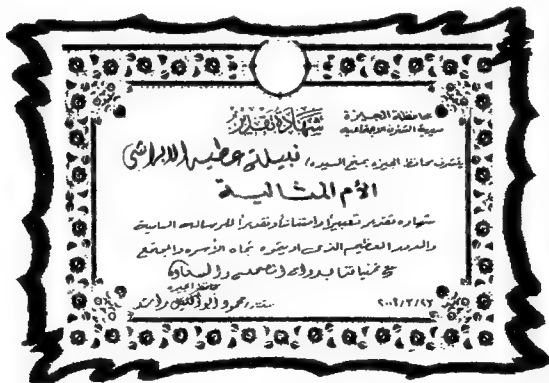 محافظة الجيزة
مديرية الشئون الاجتماعية
شهادة تقدير
يتشرف محافظ الجيزة بمنح السيدة/ نبيلة عطيه الابراشى
الأم المثالية
شهاده تقدير تعبيرا وامتنانا وتقديرا للرسالة السامية
والدور العظيم الذى تجاه الأسره والمجتمع
مع تمنياتنا بدوام الصحة والسعادة
محافظ الجيزه
مستشار/محمود أبو الليل راشد